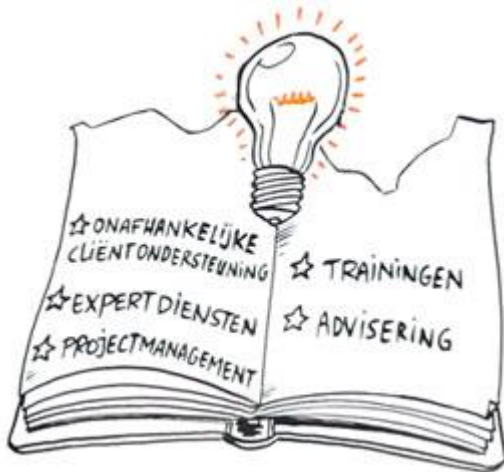 ☆ ONAFHANKELIJKE
CLIËNTONDERSTEUNING
☆ EXPERT DIENSTEN
☆ PROJECTMANAGEMENT
☆ TRAININGEN
☆ ADVISERING